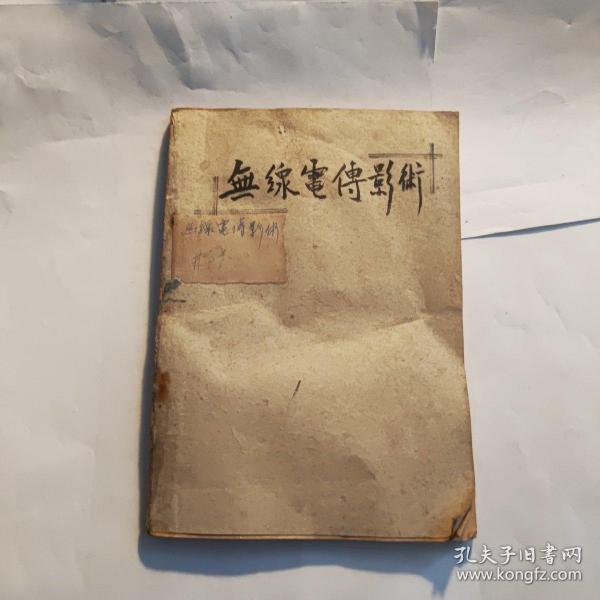 無線電傳影術
無線電傳影術
孔夫子旧书网
www.kongfz.com